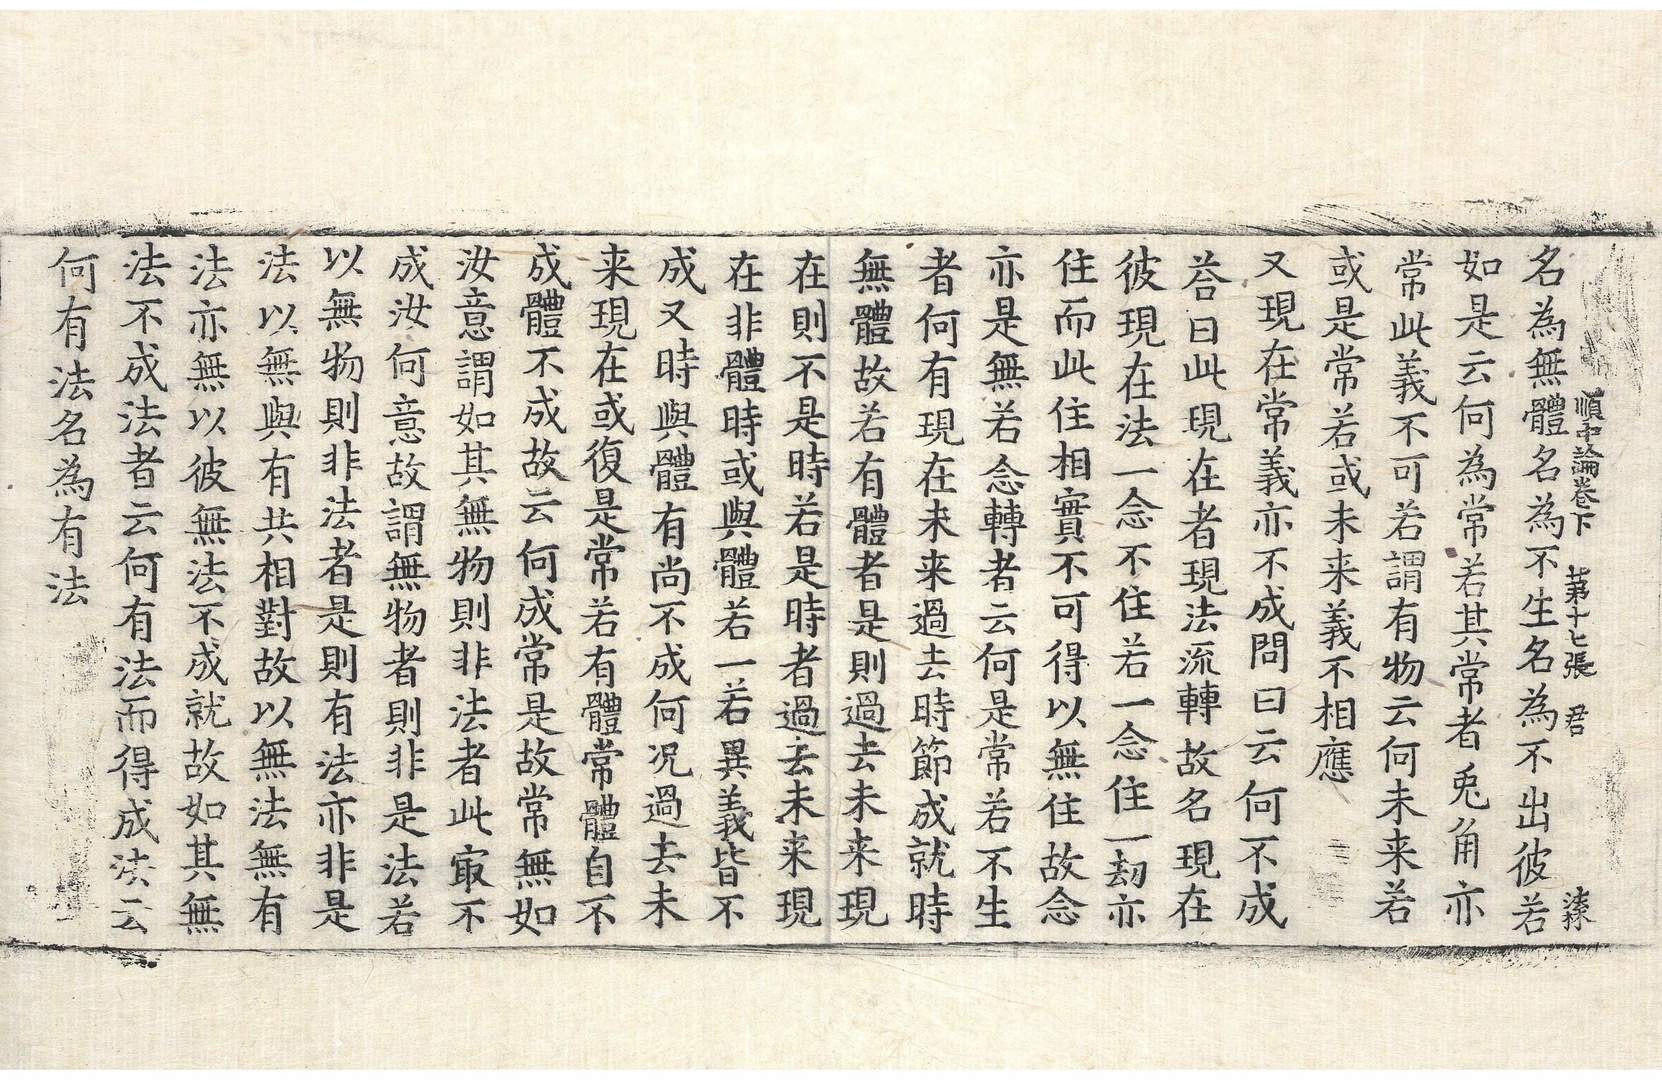 順中論卷下 第十七張 君
名為無體名為不生名為不出彼若
如是云何為常若其常者兎角亦
常此義不可若謂有物云何未来若
或是常若或未来義不相應
又現在常義亦不成問曰云何不成
荅曰此現在者現法流轉故名現在
彼現在法一念不住若一念住一劫亦
住而此住相實不可得以無住故念
亦是無若念轉者云何是常若不生
者何有現在未来過去時節成就時
無體故若有體者是則過去未来現
在則不是時若是時者過去未来現
在非體時或與體若一若異義皆不
成又時與體有尚不成何况過去未
来現在或復是常若有體常體自不
成體不成故云何成常是故常無如
汝意謂如其無物則非法者此㝡不
成汝何意故謂無物者則非是法若
以無物則非法者是則有法亦非是
法以無與有共相對故以無法無有
法亦無以彼無法不成就故如其無
法不成法者云何有法而得成法云
何有法名為有法